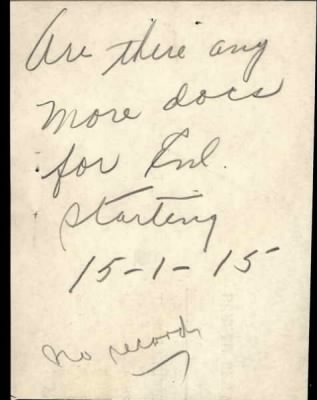 Are there any
more docs
for Enl.
starting
15-1-15
no records